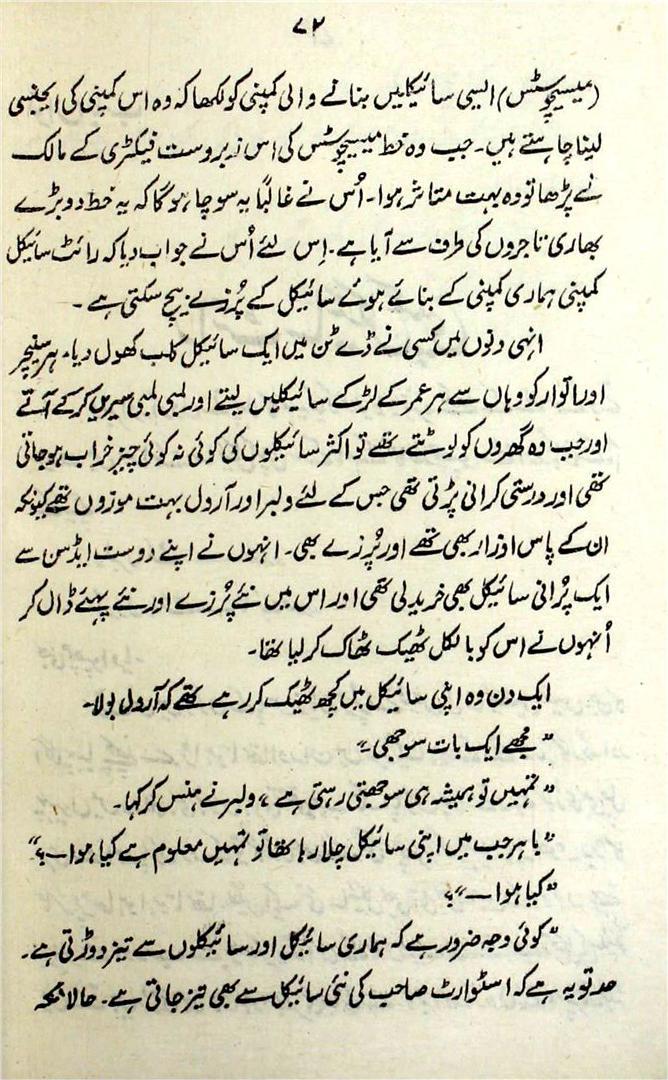 ۷۲
(میسیچوسٹس) ایسی سائیکلیں بنانے والی کمپنی کو لکھا کہ وہ اس کمپنی کی ایجنسی
لینا چاہتے ہیں۔ جب وہ خط میسیچوسٹس کی اس زبردست فیکٹری کے مالک
نے پڑھا تو وہ بہت متاثر ہوا۔ اُس نے غالباً یہ سوچا ہوگا کہ یہ خط دو بڑے
بھاری تاجروں کی طرف سے آیا ہے۔ اِس لئے اُس نے جواب دیا کہ رائٹ سائیکل
کمپنی ہماری کمپنی کے بنائے ہوئے سائیکل کے پُرزے بیچ سکتی ہے۔
انہی دنوں میں کسی نے ڈے ٹن میں ایک سائیکل کلب کھول دیا۔ ہر سنیچر
اور اتوار کو وہاں سے ہر عمر کے لڑکے سائیکلیں لیتے اور لمبی لمبی سیریں کر کے آتے
اور جب وہ گھروں کو لوٹتے تھے تو اکثر سائیکلوں کی کوئی نہ کوئی چیز خراب ہو جاتی
تھی اور درستی کرانی پڑتی تھی جس کے لئے ولبر اور آرول بہت موزوں تھے کیونکہ
ان کے پاس اوزار بھی تھے اور پُرزے بھی۔ انہوں نے اپنے دوست ایڈسن سے
ایک پُرانی سائیکل بھی خرید لی تھی اور اس میں نئے پُرزے اور نئے پہئے ڈال کر
اُنہوں نے اس کو بالکل ٹھیک ٹھاک کر لیا تھا۔
ایک دن وہ اپنی سائیکل میں کچھ ٹھیک کر رہے تھے کہ آرول بولا۔
"مجھے ایک بات سوجھی"
"تمہیں تو ہمیشہ ہی سوجھتی رہتی ہے" ولبر نے ہنس کر کہا۔
"باہر جب میں اپنی سائیکل چلا رہا تھا تو تمہیں معلوم ہے کیا ہوا ـــ؟"
"کیا ہوا ـــ"؟
"کوئی وجہ ضرور ہے کہ ہماری سائیکل اور سائیکلوں سے تیز دوڑتی ہے۔
حد تو یہ ہے کہ اسٹوارٹ صاحب کی نئی سائیکل سے بھی تیز جاتی ہے۔ حالانکہ